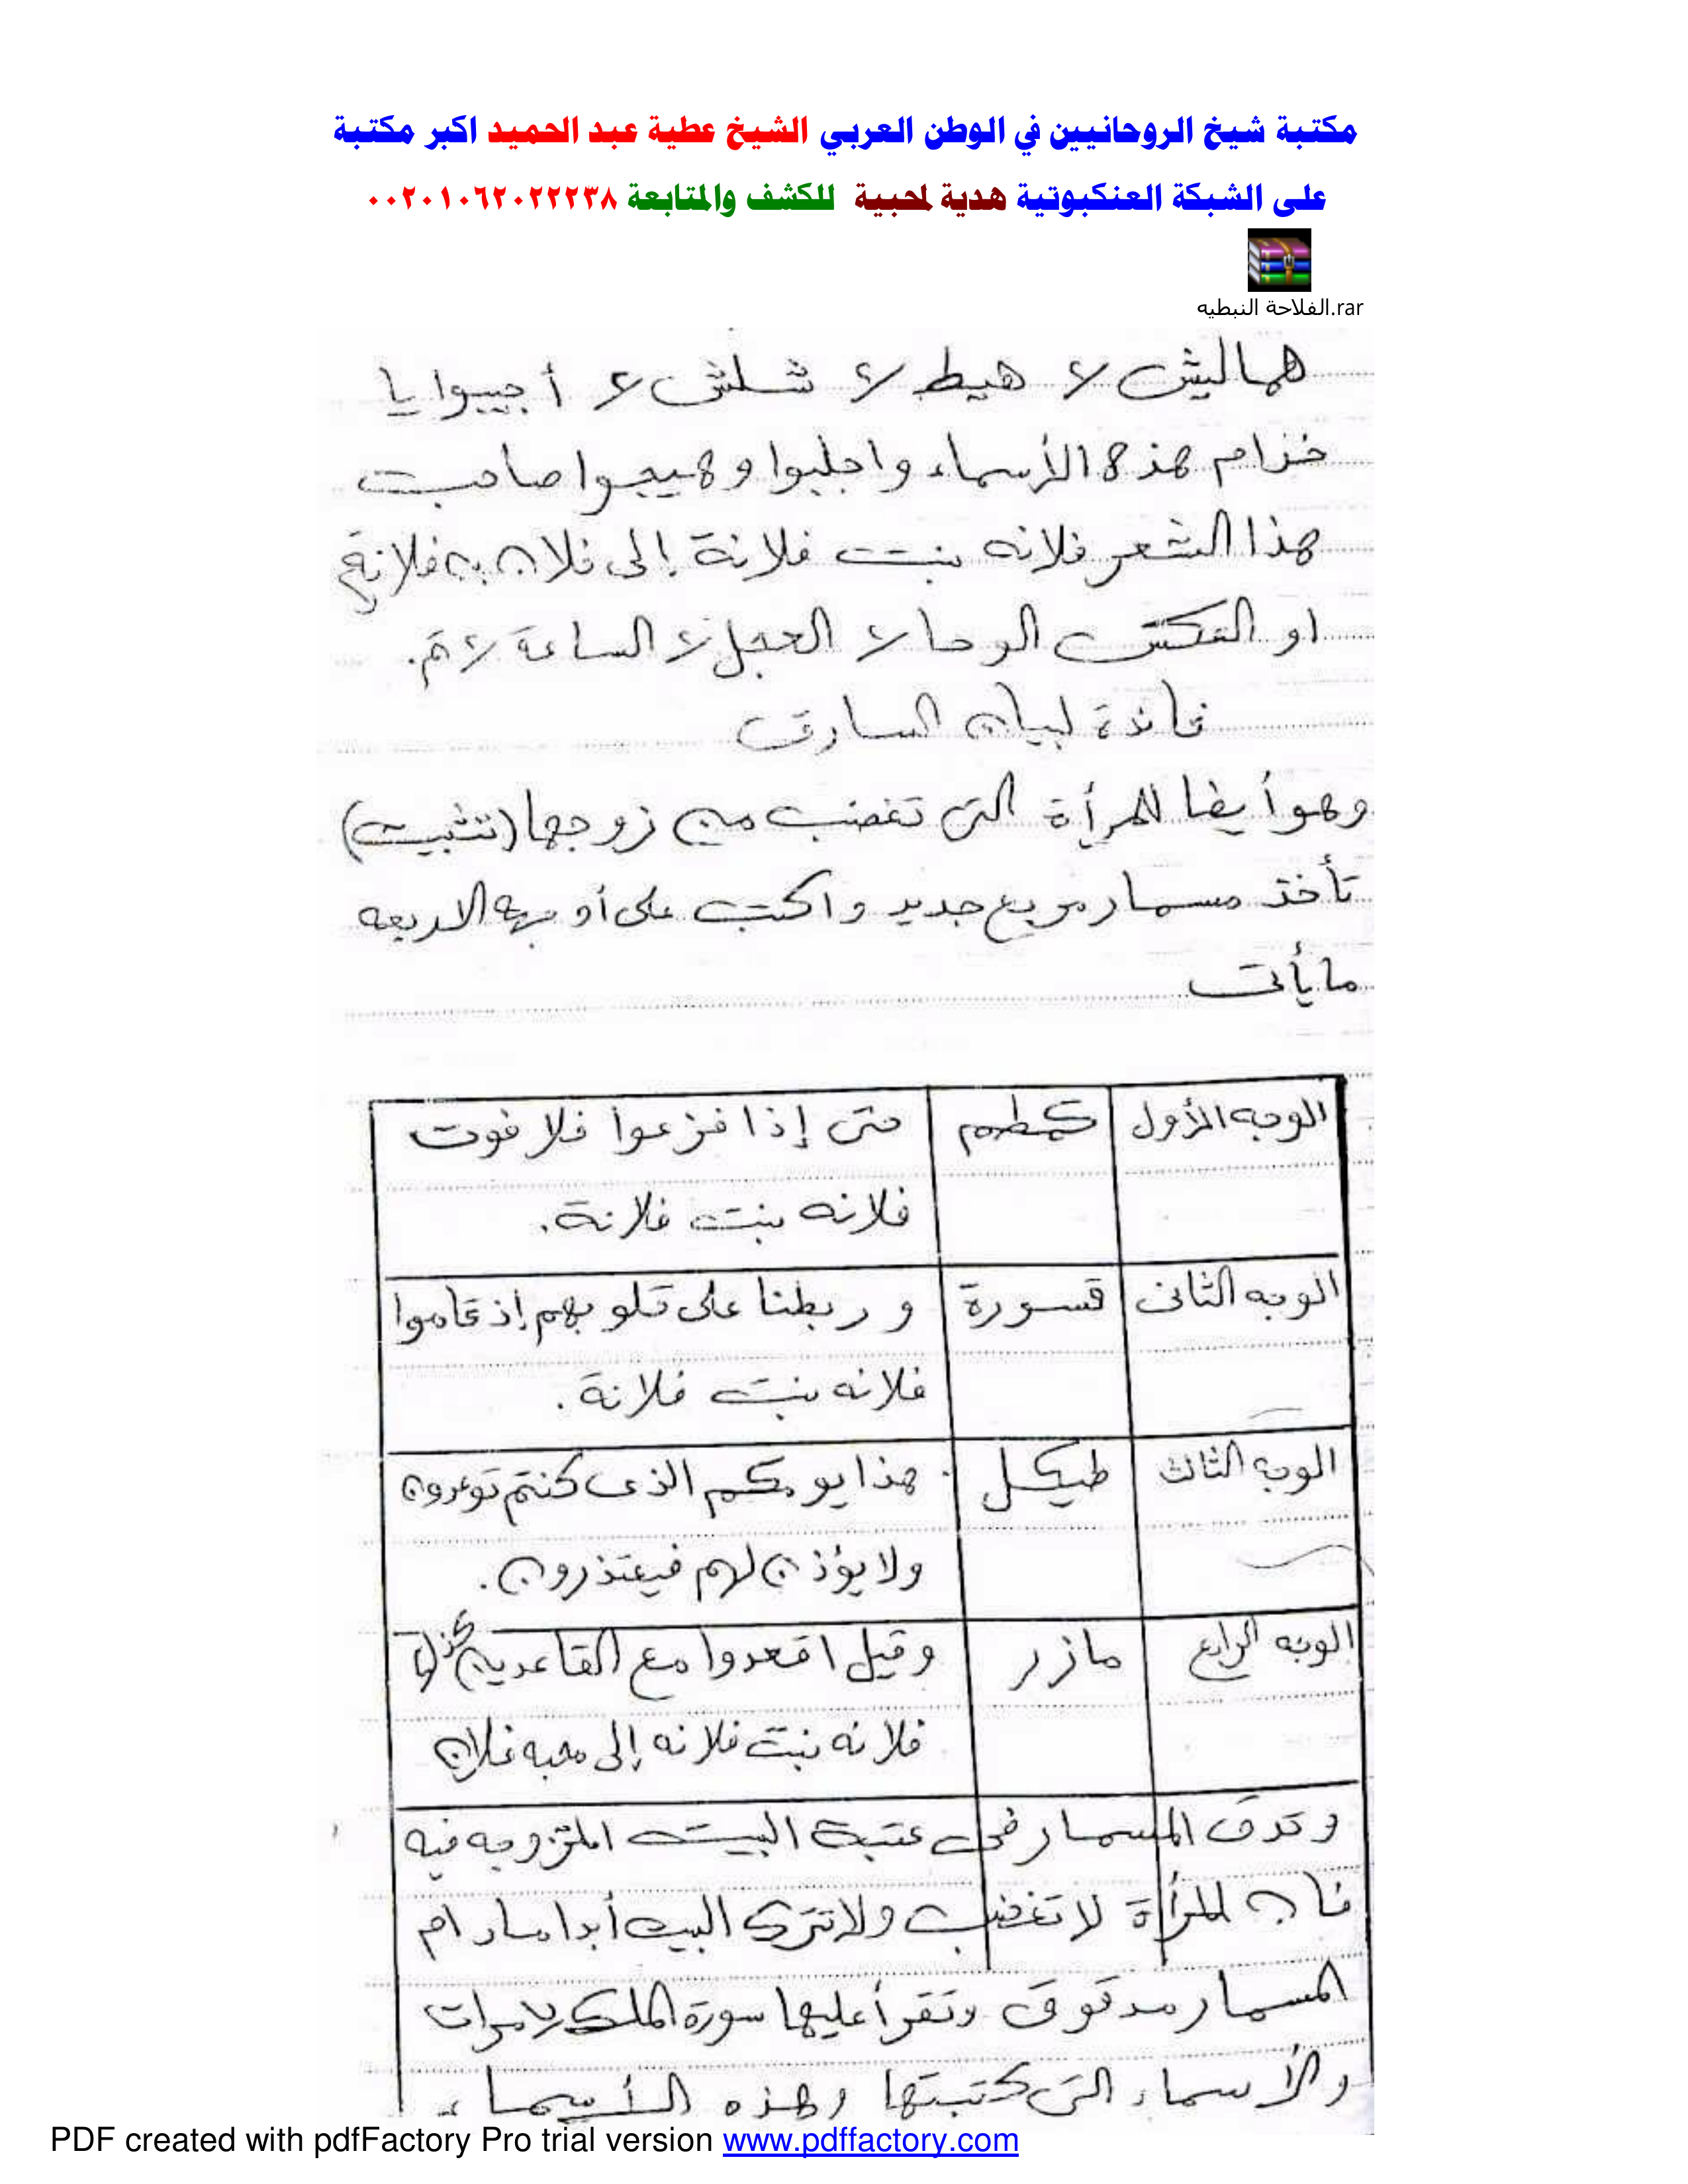 مكتبة شيخ الروحانيين في الوطن العربي الشيخ عطية عبد الحميد اكبر مكتبة
على الشبكة العنكبوتية هدية لمحبية للكشف والمتابعة ٠٠٢٠١٠٦٢٠٢٢٢٣٨
الفلاحة النبطيه.rar
هماليش ٢ هيط ٢ شلش ٢ أجيبوا يا
خدام هذه الأسماء واجلبوا وهيجوا صاحبت
هذا الشعر فلانه بنت فلانة إلى فلان بن فلانة
او العكس الوحا ٢ العجل ٢ الساعة ٢ تم.
فائدة لبيان السارق
وهو أيضا للمرأة التى تغضب من زوجها (تثبيت)
تأخذ مسمار مربع جديد واكتب على أوجهه الاربعه
ما يأتى
الوجه الأول كمطم حتى إذا فزعوا فلا فوت
فلانه بنت فلانة.
الوجه الثانى قسورة وربطنا على قلوبهم إذ قاموا
فلانه بنت فلانة.
الوجه الثالث طيكل هذا يومكم الذى كنتم توعدون
ولا يؤذن لهم فيعتذرون.
الوجه الرابع مازر وقيل اقعدوا مع القاعدين كذلك
فلانه بنت فلانه إلى محبه فلان
وتدق المسمار فى عتبة البيت المتزوجه فيه
فان المرأة لا تغضب ولا تترك البيت أبدا مادام
المسمار مدقوق وتقرأ عليها سورة الملك مرات
والأسماء التى كتبتها وهذه الأسماء
PDF created with pdfFactory Pro trial version www.pdffactory.com